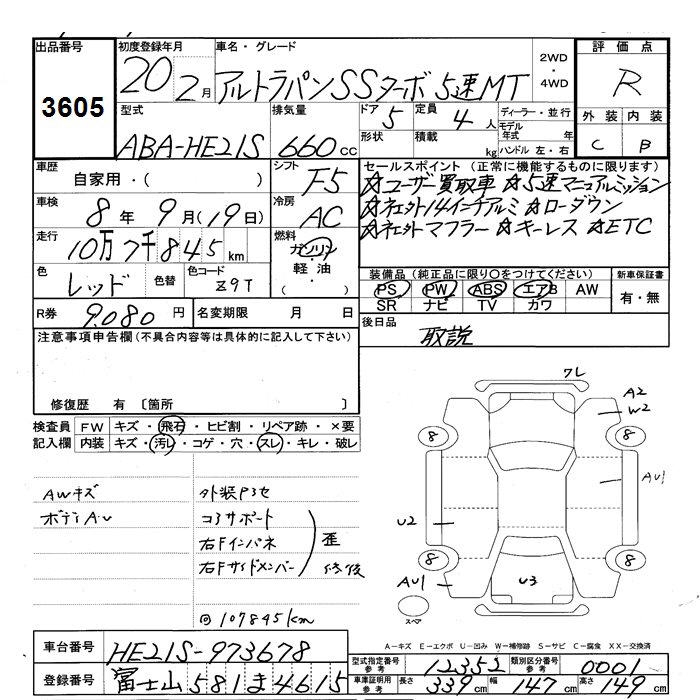 出品番号 3605
初度登録年月 20 2月
車名・グレード アルトラパンSSターボ 5速MT
2WD・4WD
評価点 R
外装 C 内装 B
型式 ABA-HE21S
排気量 660 cc
ドア 5 定員 4 人
形状 積載 kg
ディーラー・並行
モデル年式 年式
ハンドル 左・右
車歴 自家用・( )
シフト F5
車検 8年 9月(19日)
冷房 AC
走行 10万7千845 km
燃料 ガソリン・軽油・( )
色 レッド 色替
色コード Z9T
R券 9.080 円 名変期限 月 日
セールスポイント(正常に機能するものに限ります)
☆ユーザー買取車 ☆5速マニュアルミッション
☆社外14インチアルミ ☆ローダウン
☆社外マフラー ☆キーレス ☆ETC
装備品(純正品に限り○をつけてください) 新車保証書
PS PW ABS エアB AW 有・無
SR ナビ TV カワ
後日品 取説
注意事項申告欄(不具合内容等は具体的に記入して下さい)
修復歴 有 〔箇所 〕
検査員記入欄 FW キズ・飛石・ヒビ割・リペア跡・×要
内装 キズ・汚レ・コゲ・穴・スレ・キレ・破レ
AWキズ
ボディA・U
外装P3セ
コアサポート
右Fインパネ
右Fサイドメンバー
歪
修復
◎107845km
ワレ
A2
W2
8
8
AU1
U2
8
8
AU1
U3
スペア
A-キズ E-エクボ U-凹み W-補修跡 S-サビ C-腐食 XX-交換済
車台番号 HE21S-973678
登録番号 富士山 581 ま 4615
型式指定番号 参考 12352 類別区分番号 参考 0001
車庫証明用 参考 長さ 339 cm 幅 147 cm 高さ 149 cm